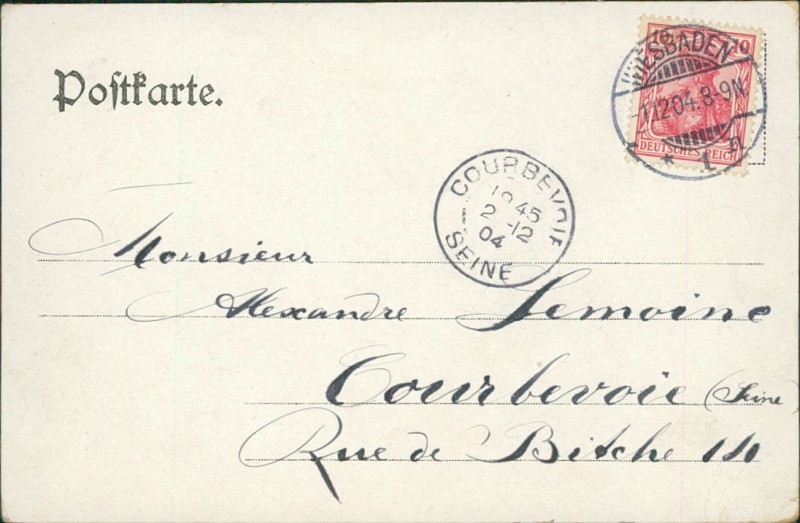 10 10
WIESBADEN
1.12.04.8-9N.
DEUTSCHES REICH
Poſtkarte.
COURBEVOIE
1945
2 -12
04
SEINE
Monsieur
Alexandre Lemoine
Courbevoie (Seine)
Rue de Bitche